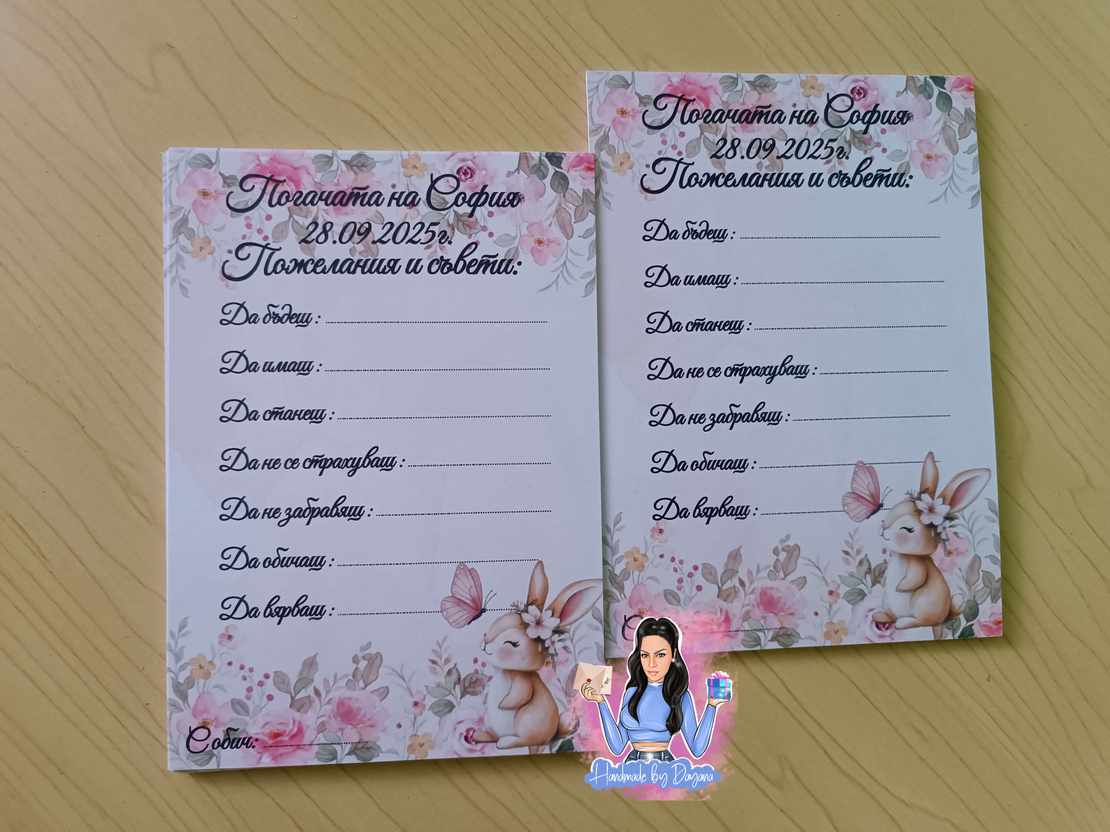 Погачата на София
28.09.2025г.
Пожелания и съвети:
Да бъдеш :
Да имаш :
Да станеш :
Да не се страхуваш :
Да не забравяш :
Да обичаш :
Да вярваш :
С обич:
Погачата на София
28.09.2025г.
Пожелания и съвети:
Да бъдеш :
Да имаш :
Да станеш :
Да не се страхуваш :
Да не забравяш :
Да обичаш :
Да вярваш :
С
Handmade by Dayana